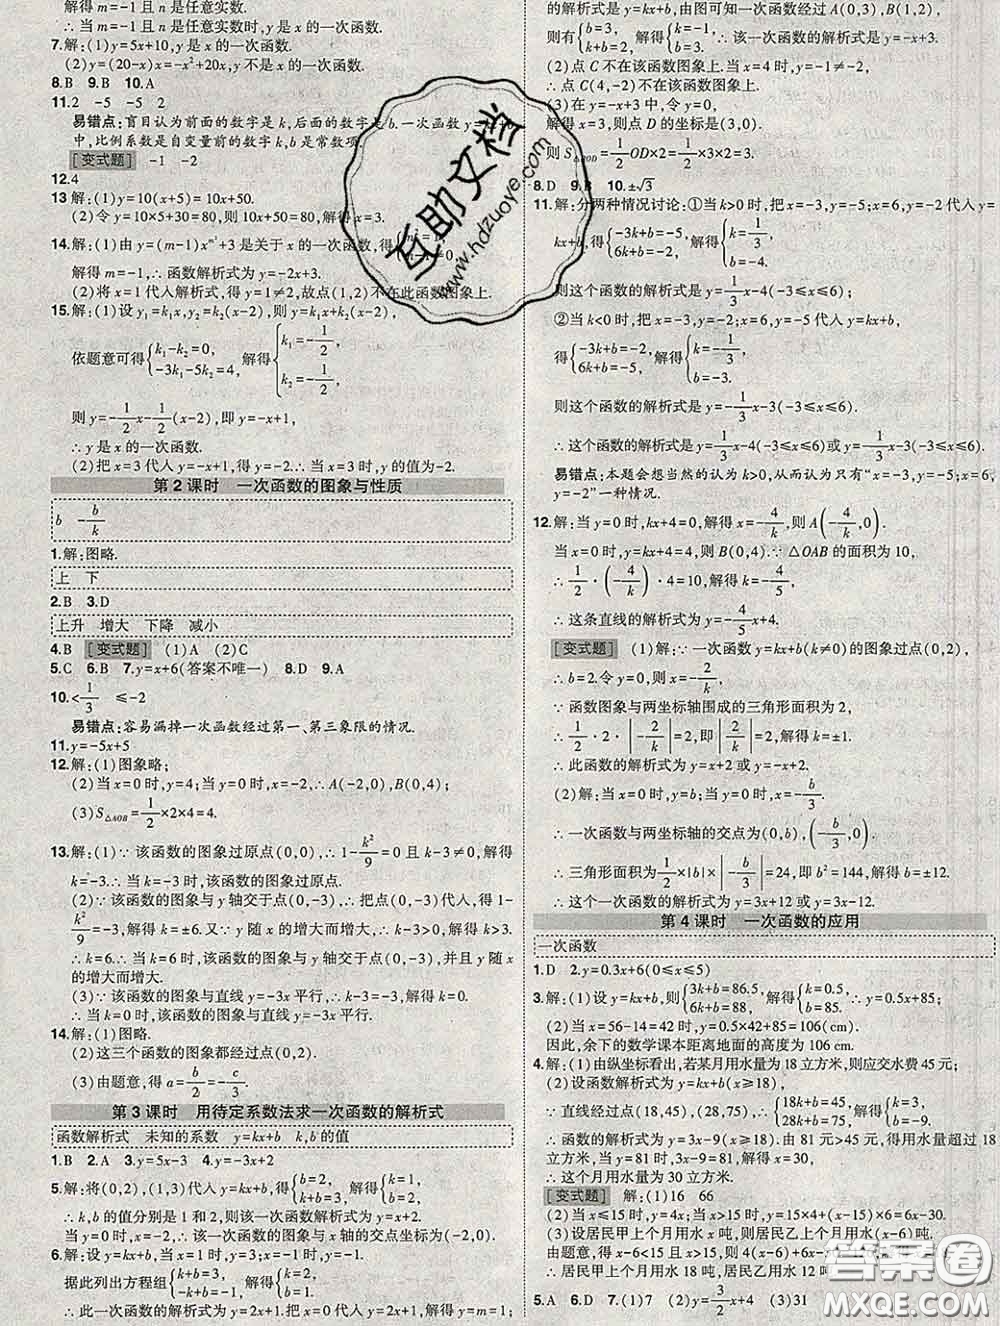 解得 m=-1 且 n 是任意实数.
∴ 当 m=-1 且 n 是任意实数.
7.解:(1)y=5x+10,y 是 x 的一次函数.
(2)y=(20-x)x=-x²+20x,y 不是 x 的一次函数.
8.B 9.B 10.A
11.2 -5 -5 2
易错点:盲目认为前面的数字是 k,后面的数字是 b.一次函数 y=
中,比例系数是自变量前的数字 k,b 是常数项.
[变式题] -1 -2
12.4
13 解:(1)y=10(x+5),即 y=10x+50.
(2)令 y=10×5+30=80,则 10x+50=80,解得 x=3.
14.解:(1)由 y=(m-1)x^m²+3 是关于 x 的一次函数,得
解得 m=-1,∴ 函数解析式为 y=-2x+3.
(2)将 x=1 代入解析式,得 y=1≠2,故点(1,2)不在此函数图象上.
15.解:(1)设 y₁=k₁x,y₂=k₂(x-2),则 y=k₁x+k₂(x-2),
依题意可得{k₁-k₂=0, -3k₁-5k₂=4, 解得{k₁=-1/2, k₂=-1/2,
则 y=-1/2x-1/2(x-2),即 y=-x+1,
∴ y 是 x 的一次函数.
(2)把 x=3 代入 y=-x+1,得 y=-2.∴ 当 x=3 时,y 的值为-2.
第 2 课时 一次函数的图象与性质
b -b/k
1.解:图略.
上 下
2.B 3.D
上升 增大 下降 减小
4.B [变式题] (1)A (2)C
5.C 6.B 7.y=x+6(答案不唯一) 8.D 9.A
10.<1/3 ≤-2
易错点:容易漏掉一次函数经过第一、第三象限的情况.
11.y=-5x+5
12.解:(1)图象略;
(2)当 x=0 时,y=4;当 y=0 时,x=-2,∴ A(-2,0),B(0,4);
(3)S△AOB=1/2×2×4=4.
13.解:(1)∵ 该函数的图象过原点(0,0),∴ 1-k²/9=0 且 k-3≠0,解得
k=-3.∴ 当 k=-3 时,该函数的图象过原点.
(2)∵ 该函数的图象与 y 轴交于点(0,-3),∴ 点(0,-3),得 1-
k²/9=-3,解得 k=±6.又∵ y 随 x 的增大而增大,∴ k-3>0,解得 k>3.
∴ k=6.∴ 当 k=6 时,该函数的图象与 y 轴交于点(0,-3),并且 y 随 x
的增大而增大.
(3)∵ 该函数的图象与直线 y=-3x 平行,∴ k-3=-3,解得 k=0.
∴ 当 k=0 时,该函数的图象与直线 y=-3x 平行.
14.解:(1)图略.
(2)这三个函数的图象都经过点(0,2).
(3)由题意,得 a=b/2=-c/3.
第 3 课时 用待定系数法求一次函数的解析式
函数解析式 未知的系数 y=kx+b k,b 的值
1.B 2.A 3.y=5x-3 4.y=-3x+2
5.解:将(0,2),(1,3)代入 y=kx+b,得{b=2, k+b=3, 解得{b=2, k=1,
∴ k,b 的值分别是 1 和 2,则该一次函数的解析式为 y=x+2.
当 y=0 时,x=-2,即该一次函数的图象与 x 轴的交点坐标为(-2,0).
6.解:设 y=kx+b,∵ 当 x=1 时,y=3;当 x=-1 时,y=-1,
据此列出方程组{k+b=3, -k+b=-1, 解得{k=2, b=1,
∴ 此一次函数的解析式为 y=2x+1.把 x=0 代入 y=2x+1,解得 y=m=1;
的解析式为 y=kx+b,由图可知一次函数经过 A(0,3),B(1,2),
则有{b=3, k+b=2, 解得{k=-1, b=3. ∴ 该一次函数的解析式为 y=-x+3.
(2)点 C 不在该函数图象上.当 x=4 时,y=-1≠-2,
∴ 点 C(4,-2)不在该函数图象上.
(3)在 y=-x+3 中,令 y=0,
解得 x=3,则点 D 的坐标是(3,0).
则 S△BOD=1/2OD×2=1/2×3×2=3.
8.D 9.B 10.±√3
11.解:分两种情况讨论:①当 k>0 时,把 x=-3,y=-5;x=6,y=-2 代入 y=
kx+b,得{-3k+b=-5, 6k+b=-2, 解得{k=1/3, b=-4.
则这个函数的解析式是 y=1/3x-4(-3≤x≤6);
②当 k<0 时,把 x=-3,y=-2;x=6,y=-5 代入 y=kx+b,
得{-3k+b=-2, 6k+b=-5, 解得{k=-1/3, b=-3.
则这个函数的解析式是 y=-1/3x-3(-3≤x≤6).
∴ 这个函数的解析式是 y=1/3x-4(-3≤x≤6)或 y=-1/3x-3(-3≤x≤6).
易错点:本题会想当然的认为 k>0,从而认为只有“x=-3,y=-5,x=6,
y=-2”一种情况.
12.解:当 y=0 时,kx+4=0,解得 x=-4/k,则 A(-4/k,0).
当 x=0 时,y=kx+4=4,则 B(0,4).∵ △OAB 的面积为 10,
∴ 1/2·(-4/k)·4=10,解得 k=-4/5,
∴ 这条直线的解析式为 y=-4/5x+4.
[变式题] (1)解:∵ 一次函数 y=kx+b(k≠0)的图象过点(0,2),
∴ b=2.令 y=0,则 x=-2/k,
∵ 函数图象与两坐标轴围成的三角形面积为 2,
∴ 1/2·2·|-2/k|=2,即|2/k|=2,解得 k=±1.
∴ 此函数的解析式为 y=x+2 或 y=-x+2.
(2)解:当 x=0 时,y=b,当 y=0 时,x=-b/3.
∴ 一次函数与两坐标轴的交点为(0,b),(-b/3,0).
∴ 三角形面积为1/2×|b|×|-b/3|=24,即 b²=144,解得 b=±12.
∴ 这个一次函数的解析式为 y=3x+12 或 y=3x-12.
第 4 课时 一次函数的应用
一次函数
1.D 2.y=0.3x+6(0≤x≤5)
3.解:(1)设 y=kx+b,则{3k+b=86.5, 6k+b=88, 解得{k=0.5, b=85. ∴ y=0.5x+85;
(2)当 x=56-14=42 时,y=0.5×42+85=106(cm).
因此,余下的数学课本距离地面的高度为 106 cm.
4.解:(1)由纵坐标看出,若某月用水量为 18 立方米,则应交水费 45 元;
(2)设函数解析式为 y=kx+b(x≥18),
∵ 直线经过点(18,45),(28,75),∴ {18k+b=45, 28k+b=75, 解得{k=3, b=-9,
∴ 函数的解析式为 y=3x-9(x≥18).由 81 元>45 元,得用水量超过 18
立方米,当 y=81 时,3x-9=81,解得 x=30,
∴ 这个月用水量为 30 立方米.
[变式题] 解:(1)16 66
(2)当 x≤15 时,y=4x;当 x>15 时,y=15×4+(x-15)×6=6x-30.
(3)设居民甲上个月用水 x 吨,则居民乙上个月用水(x-6)吨.
由题意,得 x-6<15 且 x>15,则 4(x-6)+6x-
∴ 居民甲上个月用水 18 吨,居民乙用水 12
5.A 6.D 7.(1)7 (2)y=3/2x+4 (3)31
互助文档
www.hdzuoye.com
答案圈
MXQE.COM